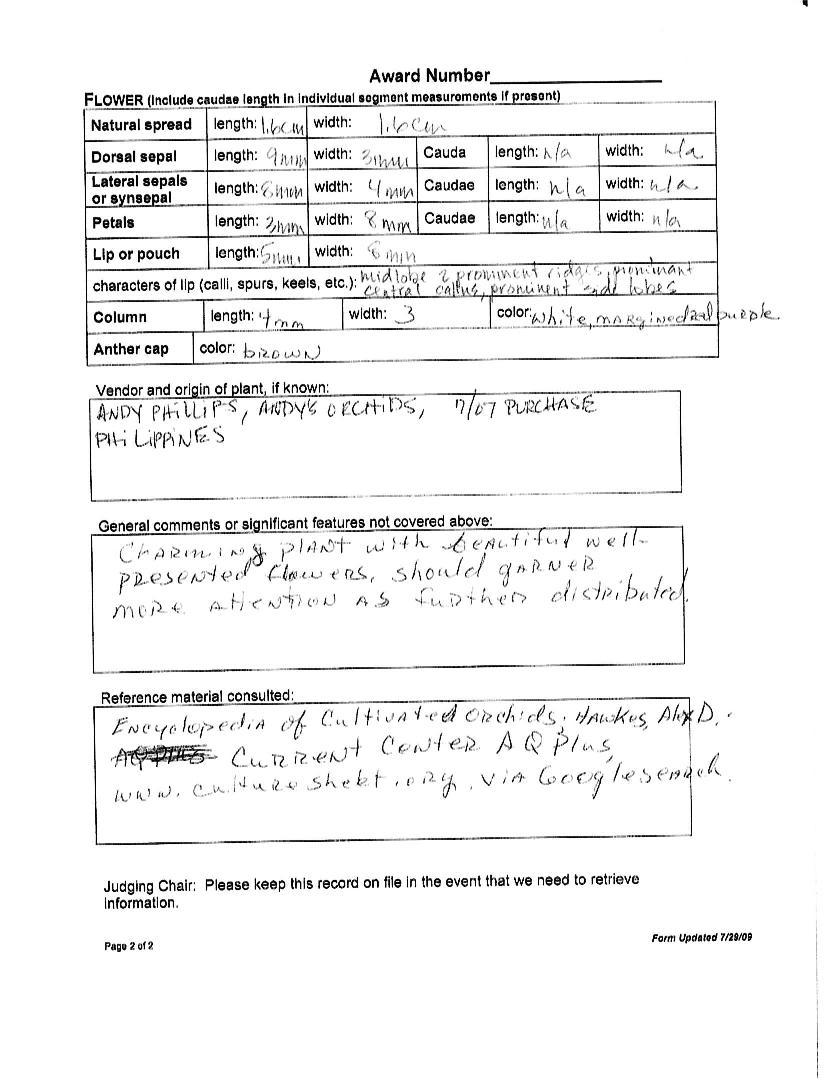 Award Number
FLOWER (Include caudae length in individual segment measurements if present)
Natural spread length: 1.6cm width: 1.6cm
Dorsal sepal length: 9mm width: 3mm Cauda length: n/a width: n/a
Lateral sepals or synsepal length: 8mm width: 4mm Caudae length: n/a width: n/a
Petals length: 3mm width: 8mm Caudae length: n/a width: n/a
Lip or pouch length: 5mm width: 6mm
characters of lip (calli, spurs, keels, etc.): midlobe 2 prominent ridges, prominant
central callus, prominent side lobes
Column length: 4mm width: 3 color: white, margined purple
Anther cap color: brown
Vendor and origin of plant, if known:
ANDY PHILLIPS, ANDY'S ORCHIDS, /07 PURCHASE
PHILIPPINES
General comments or significant features not covered above:
Charming plant with beautiful well-
presented flowers, should garner
more attention as further distributed.
Reference material consulted:
Encyclopedia of Cultivated Orchids, Hawkes, Alex D,
Current Center AQ Plus,
www.culturesheet.org, via Googlesearch.
Judging Chair: Please keep this record on file in the event that we need to retrieve
information.
Page 2 of 2
Form Updated 7/29/09